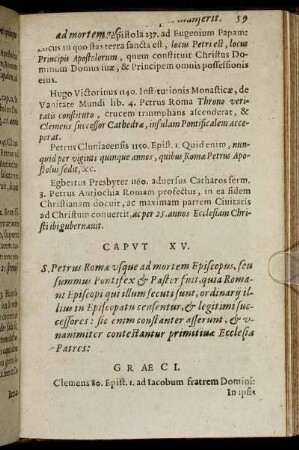 59
ad mortem Epistola 237. ad Eugenium Papam:
Locus in quo stas terra sancta est, locus Petri est, locus
Principis Apostolorum, quem constituit Christus Do-
minum Domus suæ, & Principem omnis possessionis
eius.
Hugo Victorinus 1140. Institutionis Monasticæ, de
Vanitate Mundi lib. 4. Petrus Romæ Throno veri-
tatis constituto, crucem triumphans ascenderat, &
Clemens successor Cathedræ, insulam Pontificalem acce-
perat.
Petrus Cluniacensis 1150. Epist. 1. Quid enim, nun-
quid per viginti quinque annos, quibus Romæ Petrus Apo-
stolus sedit, &c.
Egbertus Presbyter 1160. adversus Catharos serm.
3. Petrus Antiochia Romam profectus, in ea fidem
Christianam docuit, ac maximam partem Civitatis
ad Christum convertit, ac per 25. annos Ecclesiam Chri-
sti ibi gubernavit.
CAPVT XV.
S. Petrus Romæ vsque ad mortem Episcopus, seu
summus Pontifex & Pastor fuit, quia Roma-
ni Episcopi qui illum secuti sunt, ordinarij il-
lius in Episcopatu censentur, & legitimi suc-
cessores: sic enim constanter asserunt, & v-
nanimiter contestantur primitiuæ Ecclesiæ
Patres:
GRAECI.
Clemens 80. Epist. 1. ad Iacobum fratrem Domini:
In ipsis